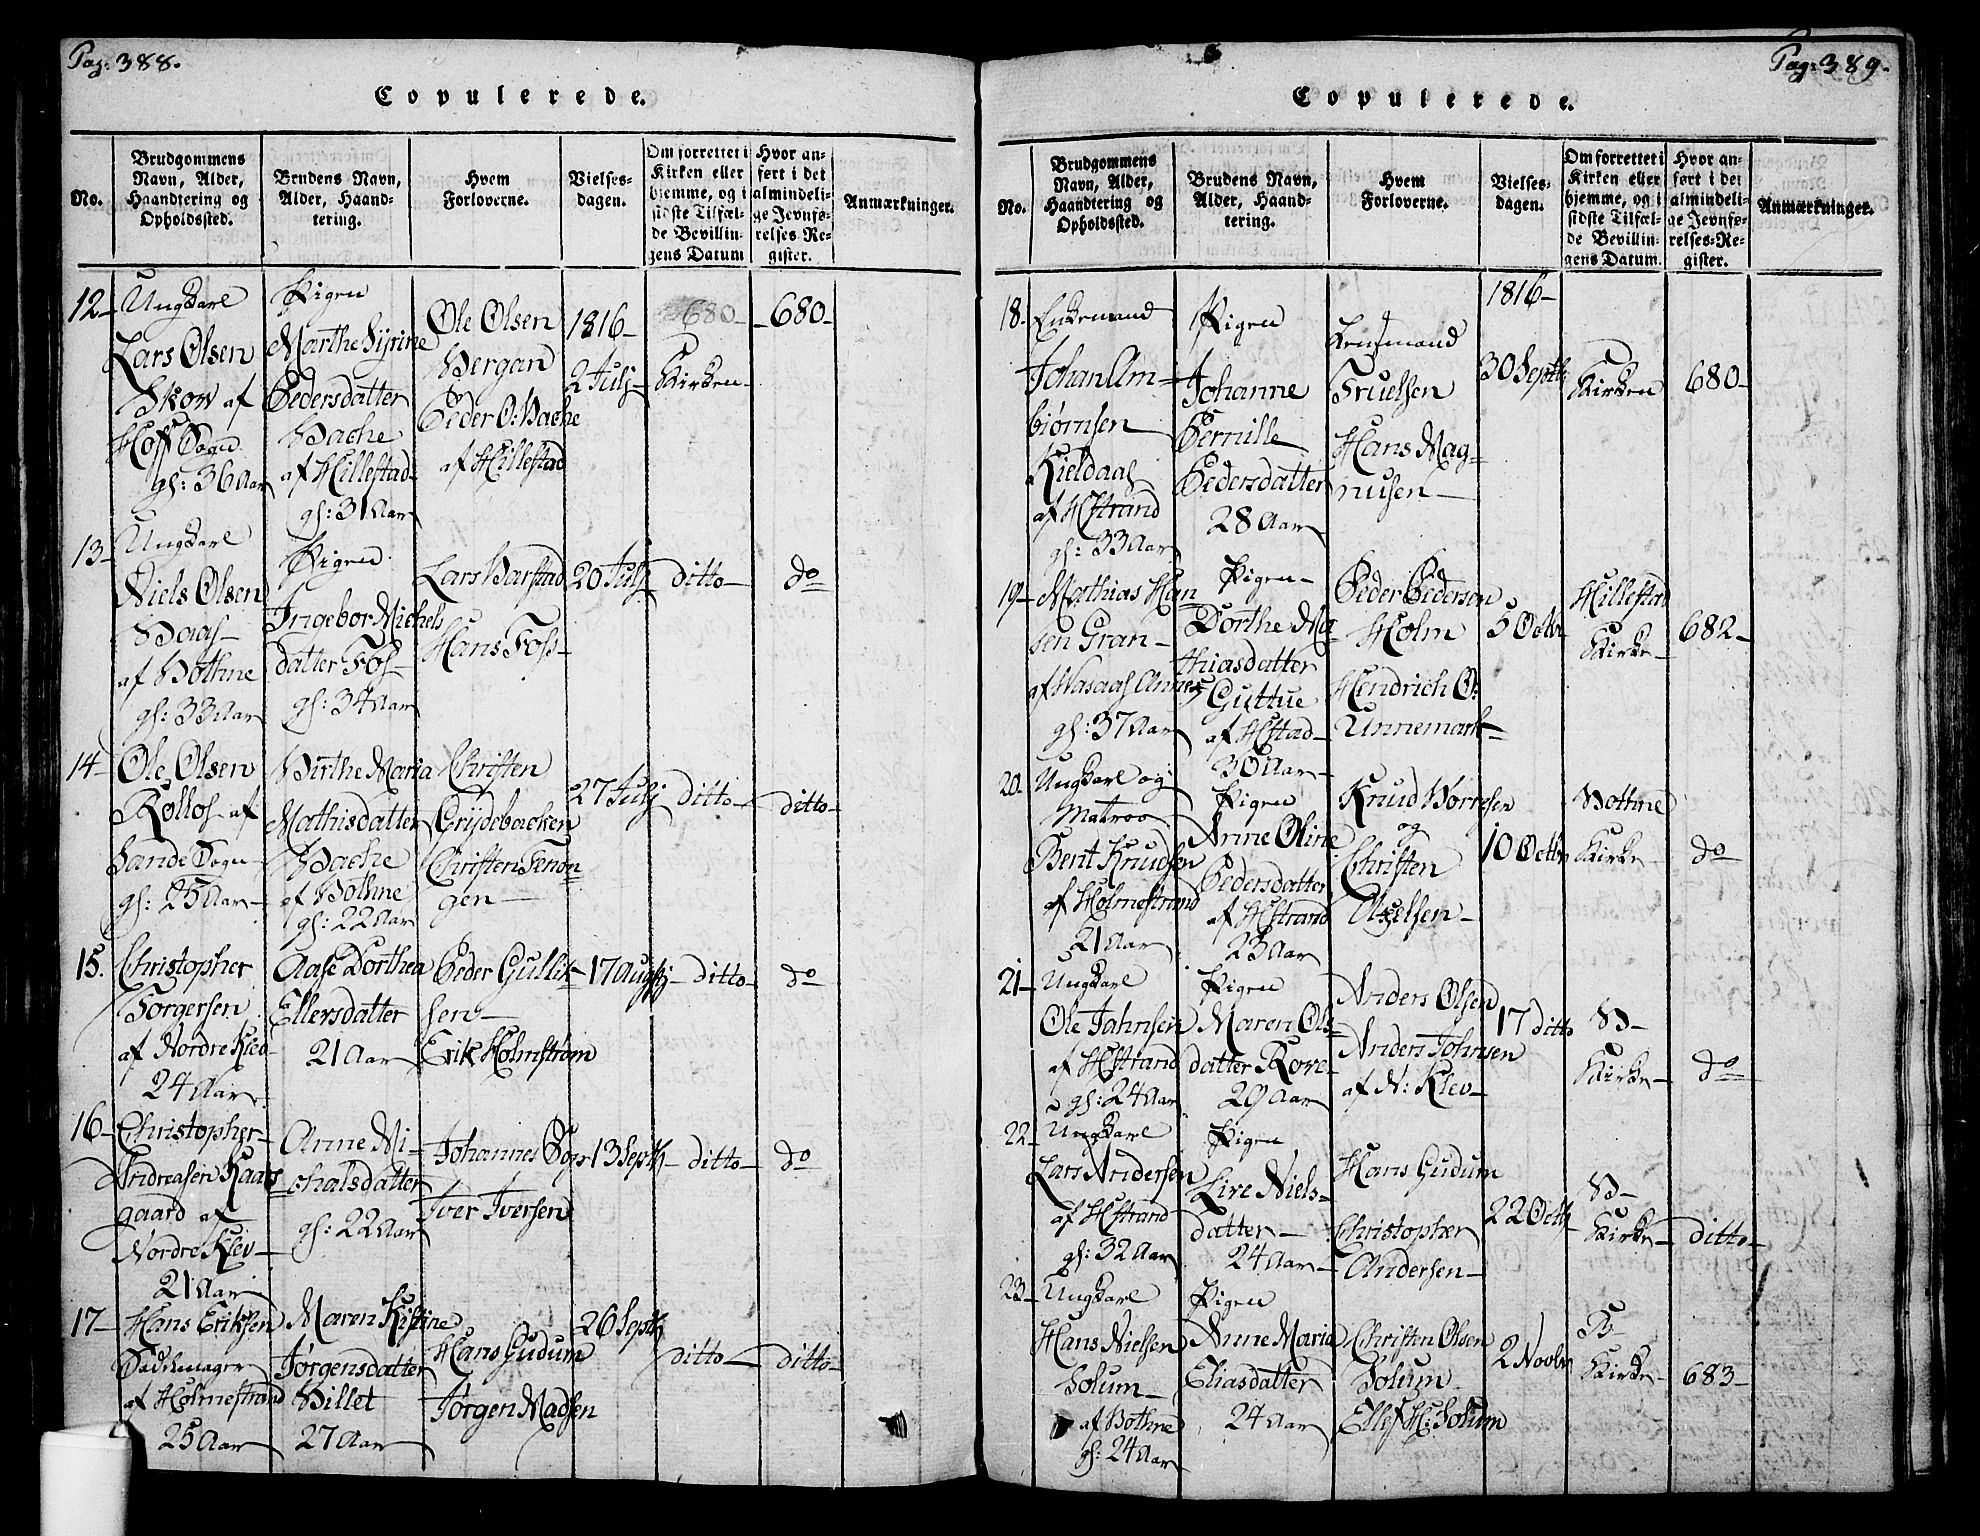 Pag: 388.
Copulerede.
No.
Brudgommens
Navn, Alder,
Haandtering og
Opholdssted.
Brudens Navn,
Alder, Haand-
tering.
Hvem
Forloverne.
Vielses-
dagen.
Om forrettet i
Kirken eller
hjemme, og i
sidste Tilfæl-
de Bevillin-
gens Datum
Hvor an-
ført i det
almindeli-
ge Jevnfø-
relses Re-
gister.
Anmærkninger.
12-
Ungkarl
Lars Olsen
Skow af
Hoff Sogn
gl: 36 Aar
Pigen
Marthe Sijrine
Pedersdatter
Bache
af Hillestad-
gl: 31 Aar
Ole Olsen
Bergan
Peder O: Bache
af Hillestad
1816-
2 Julj
680-
Kirken-
-680-
13-
Ungkarl
Niels Olsen
Baas-
af Bothne
gl: 33 Aar
Pigen
Ingebor Michels
datter Fos-
gl: 34 Aar
Lars Barstad
Hans Foss-
20 Julj
ditto-
do
14-
Ole Olsen
Rollos af
Sande Sogn-
gl: 25 Aar-
Birthe Maria
Mathisdatter
Bache
af Bothne
gl: 22 Aar
Christen
Grydebacken
Christen Tenon=
gen-
27 Julj
ditto-
ditto-
15.
Christopher
Torgersen
af Nordre Klev-
24 Aar
Aase Dorthea
Ellersdatter
21 Aar
Peder Gullik-
sen-
Erik Holmstrøm
17 Augstj-
ditto-
do
16-
Christopher-
Andreasen Kaas
gaard af
Nordre Klev-
21 Aar
Anne Mi-
chalsdatter
gl: 22 Aar
Johannes
Iver Iversen
13 Septb-
ditto-
do
17-
Hans Eriksen
af Holmestrand
25 Aar
Maren Kistine
Jørgensdatter
Billet
27 Aar
Hans Gudum
Jørgen Madsen
26 Septb
ditto-
ditto-
Pag: 389.
Copulerede.
No.
Brudgommens
Navn, Alder,
Haandtering og
Opholdssted.
Brudens Navn,
Alder, Haand-
tering.
Hvem
Forloverne.
Vielses-
dagen.
Om forrettet i
Kirken eller
hjemme, og i
sidste Tilfæl-
de Bevillin-
gens Datum.
Hvor an-
ført i det
almindeli-
ge Jevnfø-
relses-Re-
gister.
Anmærkninger.
18-
Enkemand
Johan Am-
biørnsen
Kieldaas
af Hstrand
gl: 33 Aar
Pigen
Johanne
Pernille
Pedersdatter
28 Aar
Lensmand
Truelsen
Hans Mag=
nusen-
1816-
30 Septb
Kirken
680-
19-
Mathias Han
sen Gran-
gl: 37 Aar
Pigen-
Dorthe Ma-
thiasdatter
Guttue
af Hstad-
30 Aar-
Peder Pedersen
Holm
Hendrich O:
Unnemark-
5 Octbr
Hillestad
Kirke-
682-
20-
Ungkarl og
Matroo
Bent Knudsen
af Holmestrand
21 Aar
Pigen
Anne Oline
Pedersdatter
af Hstrand
23 Aar
Knud Borresen
og
Christen
Axelsen-
10 Octbr
Bothne
Kirke-
do
21-
Ungkarl
Ole Jahnsen
af Hstrand
gl: 24 Aar
Pigen
Maren Ols-
datter Rove-
29 Aar
Anders Olsen
Anders Johnsen
af N: Klev-
17 ditto
B-
Kirke-
do
22-
Ungkarl
Lars Andersen
af Hstrand
gl: 32 Aar
Pigen
Live Niels-
datter-
24 Aar-
Hans Gudum
Christopher
Andersen-
22 Octb
B-
Kirke-
ditto-
23-
Ungkarl
Hans Nielsen
Solum-
af Bothne
gl: 24 Aar
Pigen
Anne Maria
Eliasdatter
24 Aar
Christen Olsen
Solum-
Ellef H: Solum
2 Novbr
B-
Kirke-
683-